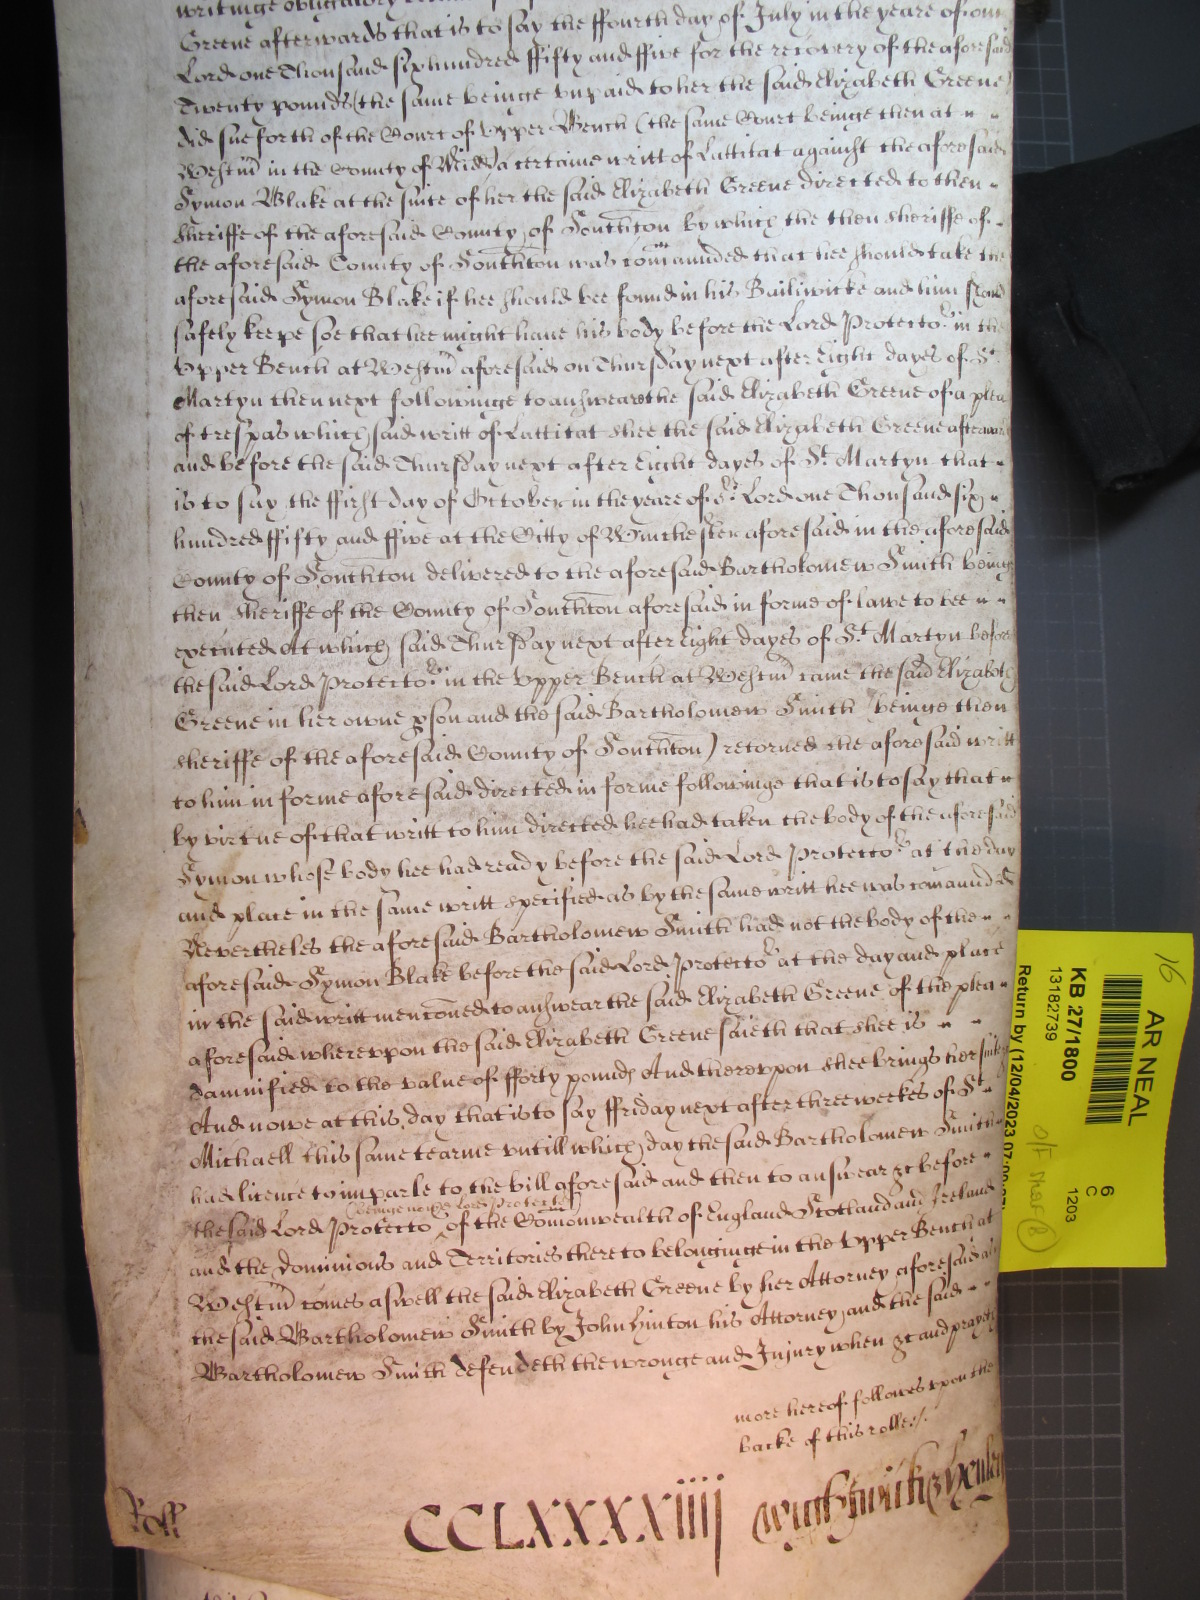 writinge obligatory
Greene afterwards that is to say the ffourth day of July in the yeare of our
Lord one Thousand six hundred ffifty and ffive for the recovery of the aforesaid
Twenty pounds (the same beinge unpaid to her the said Elizabeth Greene)
did sue forth of the Court of Upper Bench (the same Court beinge then at
Westm̄ in the County of Midd) a certaine writt of Lattitat against the aforesaid
Symon Blake at the suite of her the said Elizabeth Greene directed to then
sheriffe of the aforesaid County of Southton by which the then sheriffe of
the aforesaid County of Southton was com̄aunded that hee should take the
aforesaid Symon Blake if hee should bee found in his Bailiwicke and him
safely keepe soe that hee might have his body before the Lord Protector in the
Upper Bench at Westm̄ aforesaid on Thursday next after Eight dayes of St
Martyn then next followinge to answeare the said Elizabeth Greene of a plea
of trespas which said writt of Lattitat shee the said Elizabeth Greene afterwards
and before the said Thursday next after Eight dayes of St Martyn that
is to say the ffirst day of October in the yeare of or Lord one Thousand six
hundred ffifty and ffive at the Citty of Winchester aforesaid in the aforesaid
County of Southton delivered to the aforesaid Bartholomew Smith beinge
then sheriffe of the County of Southton aforesaid in forme of lawe to bee
executed At which said Thursday next after Eight dayes of St Martyn before
the said Lord Protector in the Upper Bench at Westm̄ came the said Elizabeth
Greene in her owne pson and the said Bartholomew Smith (beinge then
sheriffe of the aforesaid County of Southton) retorned the aforesaid writt
to him in forme aforesaid directed in forme followinge that is to say that
by virtue of that writt to him directed hee had taken the body of the aforesaid
Symon whose body hee had ready before the said Lord Protector at the day
and place in the same writt specified as by the same writt hee was com̄aunded
Nevertheles the aforesaid Bartholomew Smith had not the body of the
aforesaid Symon Blake before the said Lord Protector at the day and place
in the said writt menc̄oned to answear the said Elizabeth Greene of the plea
aforesaid whereupon the said Elizabeth Greene saieth that shee is
damnified to the value of fforty pounds And thereupon shee brings her suite
And nowe at this day that is to say ffriday next after three weekes of St
Michaell this same tearme untill which day the said Bartholomew Smith
had licence to imparle to the bill aforesaid and then to answear &c before
(beinge nowe Lord Protector)
the said Lord Protector of the Com̄onwealth of England Scotland and Ireland
and the Dominions and Territories thereto belonginge in the Upper Bench at
Westm̄ comes aswell the said Elizabeth Greene by her Attorney aforesaid as
the said Bartholomew Smith by John Hinton his Attorney and the said
Bartholomew Smith defendeth the wronge and Injury when &c and prayeth
more hereof followes upon the
backe of this rolle
Roll
CCLXXXXiiij
16
AR NEAL
6
C
1203
KB 27/1800
13182739
Return by (12/04/2023 07:00: